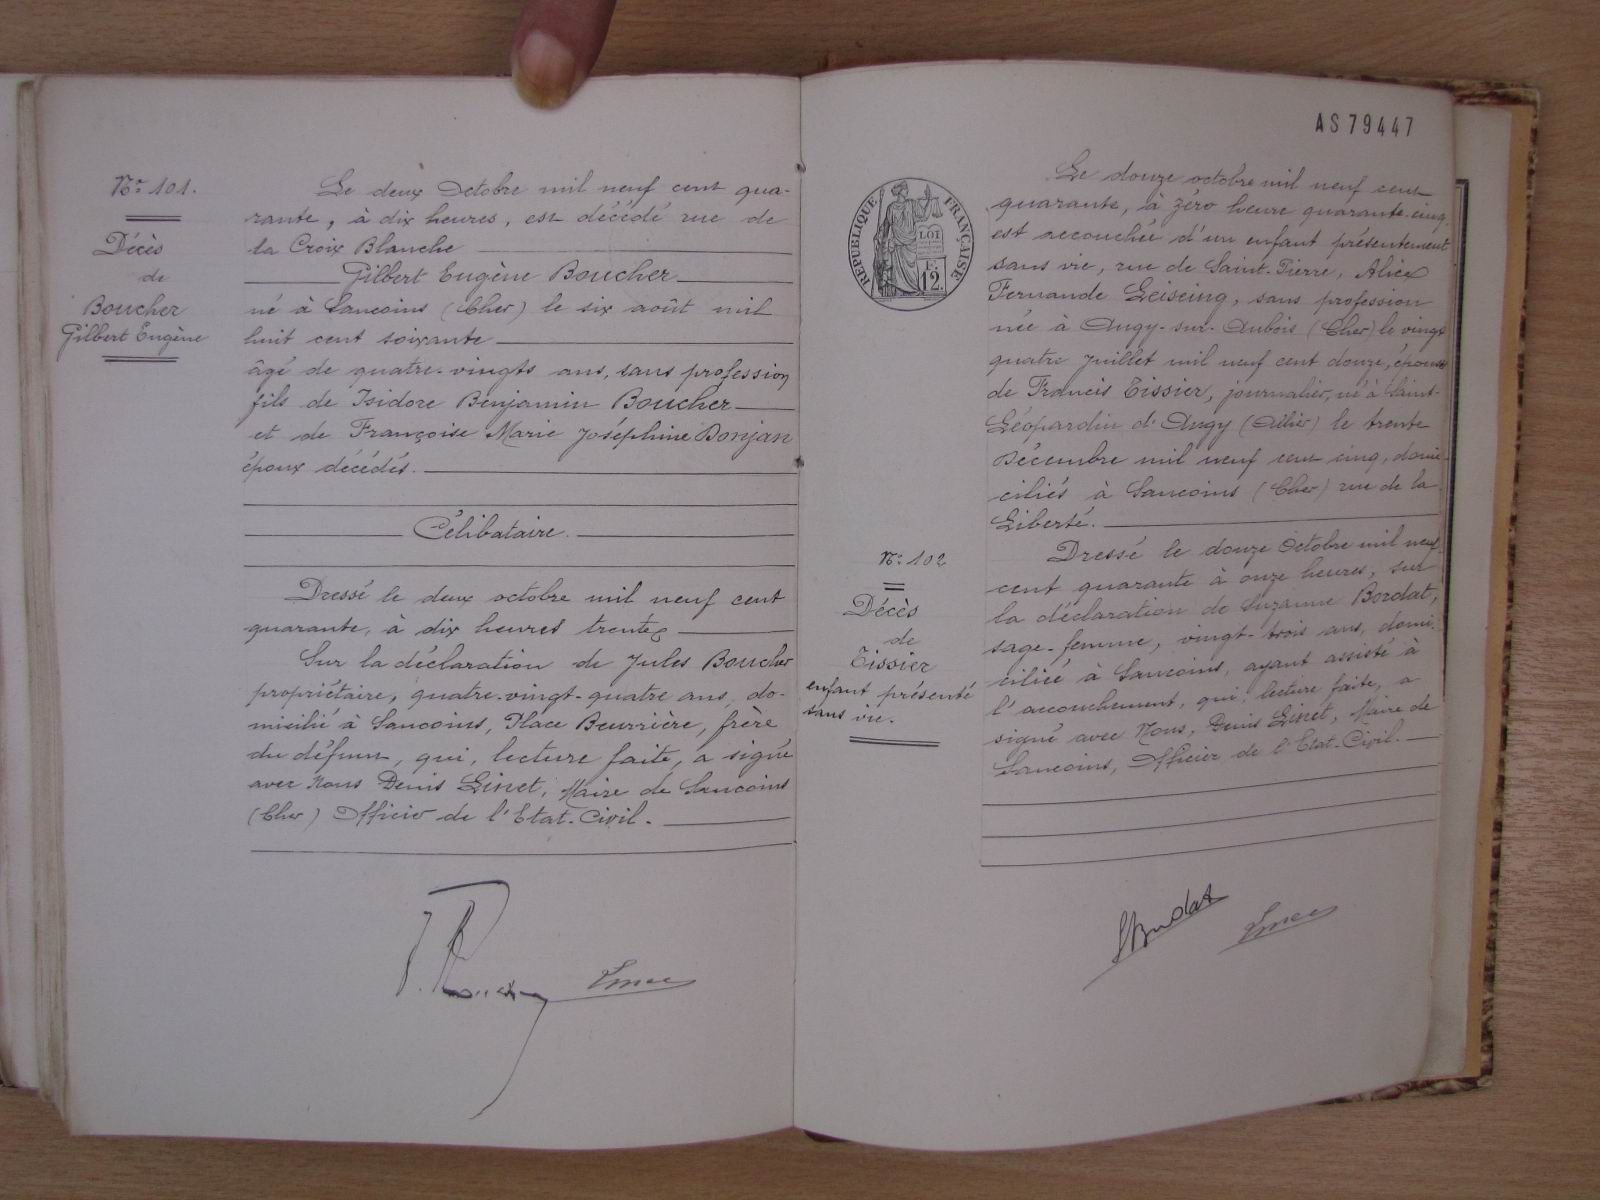 N° 101.
Décès
de
Boucher
Gilbert Eugène
Le deux Octobre mil neuf cent qua-
rante, à dix heures, est décédé rue de
la Croix Blanche
Gilbert Eugène Boucher
né à Sancoins (Cher) le six août mil
huit cent soixante
âgé de quatre-vingts ans, sans profession
fils de Isidore Benjamin Boucher
et de Françoise Marie Joséphine Bonjan
époux décédés.
Célibataire.
Dressé le deux octobre mil neuf cent
quarante, à dix heures trente
Sur la déclaration de Jules Boucher
propriétaire, quatre-vingt-quatre ans, do-
micilié à Sancoins, Place Beurrière, frère
du défunt, qui, lecture faite, a signé
avec Nous Denis Linet, Maire de Sancoins
(Cher) Officier de l'Etat-Civil.
AS79447
REPUBLIQUE FRANÇAISE
LOI
F.
12.
N° 102
Décès
de
Tissier
enfant présenté
sans vie.
Le douze octobre mil neuf cent
quarante, à zéro heure quarante-cinq
est accouchée d'un enfant présentement
sans vie, rue de Saint-Pierre, Alice
Fernande Leiseing, sans profession
née à Augy-sur-Aubois (Cher) le vingt
quatre Juillet mil neuf cent douze, épouse
de Francis Tissier, journalier, né à Saint-
Léopardin d'Augy (Allier) le trente
Décembre mil neuf cent cinq, domi-
ciliés à Sancoins (Cher) rue de la
Liberté.
Dressé le douze Octobre mil neuf
cent quarante à onze heures, sur
la déclaration de Suzanne Bordat,
sage-femme, vingt-trois ans, domi-
ciliée à Sancoins, ayant assisté à
l'accouchement, qui, lecture faite, a
signé avec Nous, Denis Linet, Maire de
Sancoins, Officier de l'Etat-Civil.
SBordat